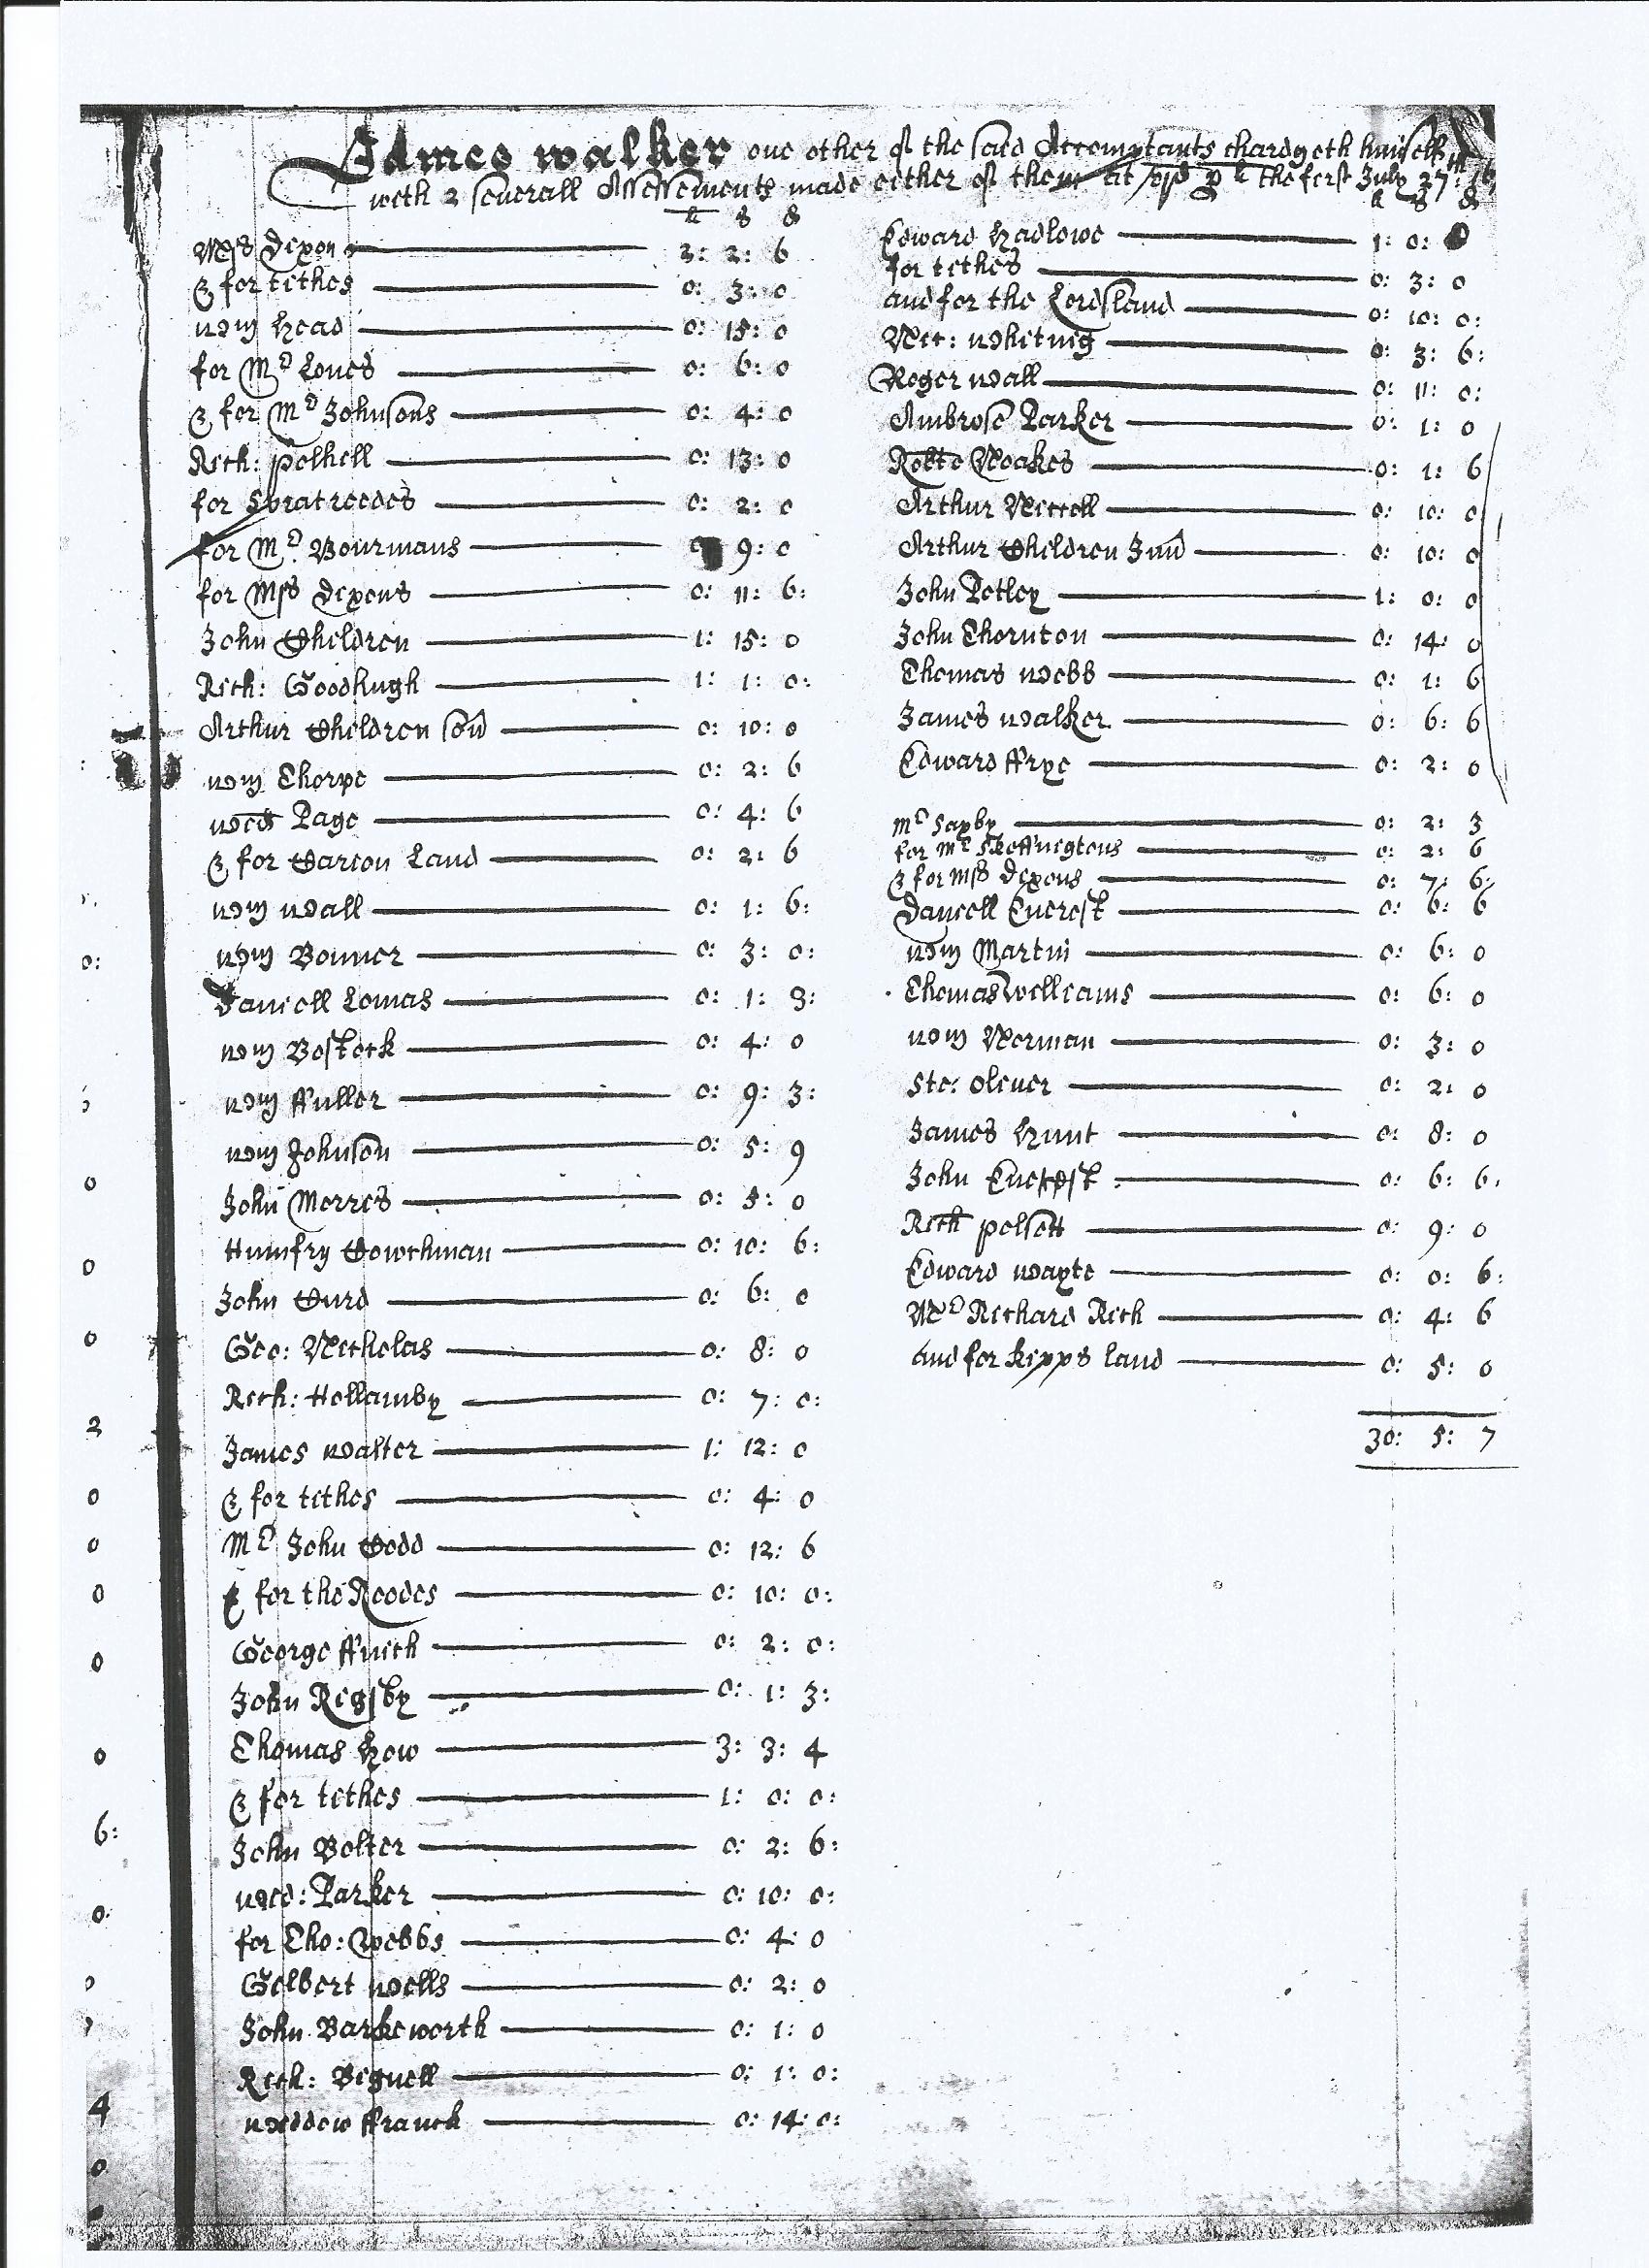 James walker one other of the said Accomptants chardgeth himself
with 2 severall Assessements made either of them at the first July 27th
li s d
Mrs Dixon 2: 2: 6
& for tithes 0: 3: 0
Wm Head 0: 15: 0
for Mr Loues 0: 6: 0
& for Mr Johnsons 0: 4: 0
Rich: polhill 0: 13: 0
for Spratreedes 0: 2: 0
for Mr Bourmans 9: 0
for Mrs Dixons 0: 11: 6:
John Children 1: 15: 0
Rich: Goodhugh 1: 1: 0:
Arthur Children sen 0: 10: 0
Wm Thorpe 0: 2: 6
Wid Page 0: 4: 6
& for Carion Land 0: 2: 6
Wm Wall 0: 1: 6:
Wm Bonner 0: 3: 0:
Daniell Lomas 0: 1: 3:
Wm Bostock 0: 4: 0
Wm ffuller 0: 9: 3:
Wm Johnson 0: 5: 9
John Morres 0: 5: 0
Humfry Couchman 0: 10: 6:
John Curd 0: 6: 0
Geo: Nicholas 0: 8: 0
Rich: Hollamby 0: 7: 0:
James Walter 1: 12: 0
& for tithes 0: 4: 0
Mr John Codd 0: 12: 6
& for the Reedes 0: 10: 0:
George ffinch 0: 2: 0:
John Rigsby 0: 1: 3:
Thomas How 3: 3: 4
& for tithes 1: 0: 0:
John Bolter 0: 2: 6:
Wid: Parker 0: 10: 0:
for Tho: Webbs 0: 4: 0
Gilbert Wells 0: 2: 0
John Barkeworth 0: 1: 0
Rich: Bignell 0: 1: 0:
Widdow ffranck 0: 14: 0:
li s d
Edward Hadlowe 1: 0:
for tithes 0: 3: 0
and for the Lordsland 0: 10: 0:
Nic: Whiting 0: 3: 6:
Roger Wall 0: 11: 0:
Ambrose Parker 0: 1: 0
Robte Noakes 0: 1: 6
Arthur Nicoll 0: 10: 0
Arthur Children Jun 0: 10: 0
John Petley 1: 0: 0
John Thornton 0: 14: 0
Thomas Webb 0: 1: 6
James Walker 0: 6: 6
Edward ffrye 0: 2: 0
Mr Saxby 0: 2: 3
for Mr Skeffingtons 0: 2: 6
& for Mrs Dixons 0: 7: 6:
Daniell Euerest 0: 6: 6
Wm Martin 0: 6: 0
Thomas Williams 0: 6: 0
Wm Norman 0: 3: 0
Ste: Oliuer 0: 2: 0
James Hunt 0: 8: 0
John Euerest 0: 6: 6.
Rich polsott 0: 9: 0
Edward Wayte 0: 0: 6:
Mr Richard Rich 0: 4: 6
and for kipps land 0: 5: 0
30: 5: 7